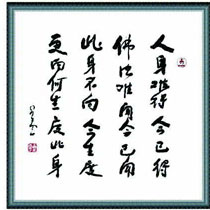 人身难得今已得
佛法难闻今已闻
此身不向今生度
更向何生度此身